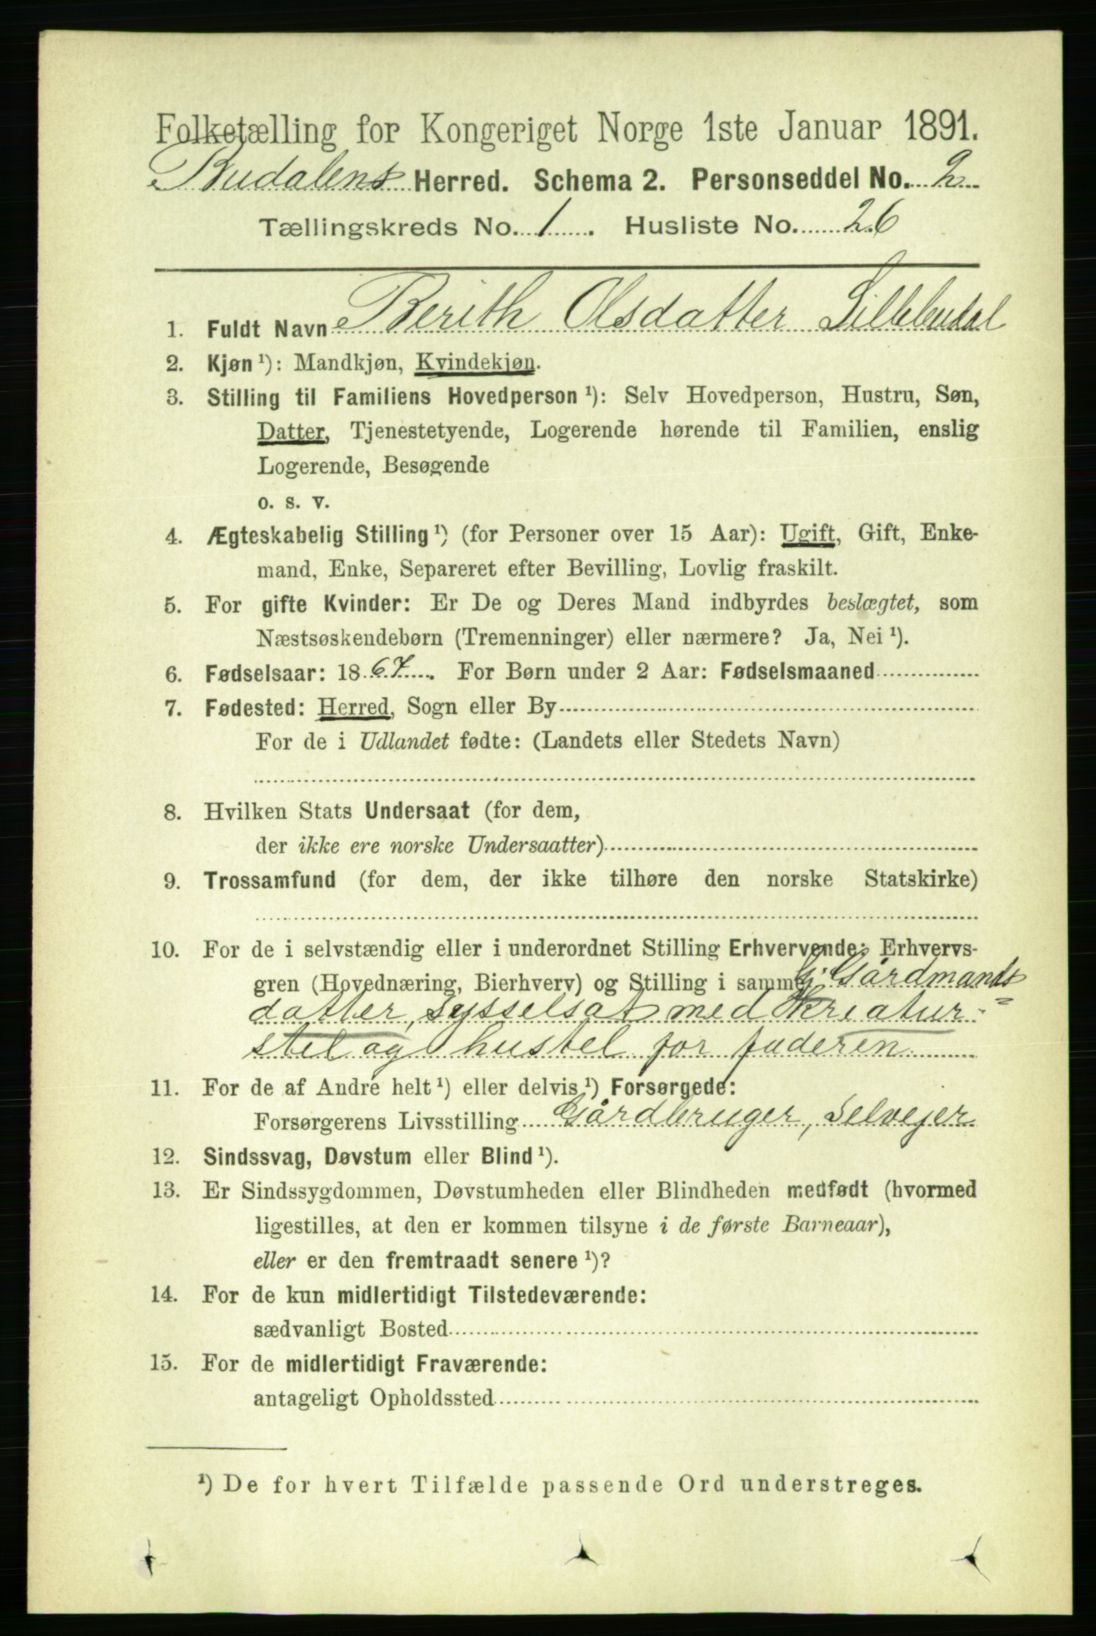 Folketælling for Kongeriget Norge 1ste Januar 1891.
Budalens Herred. Schema 2. Personseddel No. 2
Tællingskreds No. 1. Husliste No. 26
1. Fuldt Navn Berith Olsdatter Sillibudal
2. Kjøn ¹): Mandkjøn, Kvindekjøn.
3. Stilling til Familiens Hovedperson ¹): Selv Hovedperson, Hustru, Søn,
Datter, Tjenestetyende, Logerende hørende til Familien, enslig
Logerende, Besøgende
o. s. v.
4. Ægteskabelig Stilling ¹) (for Personer over 15 Aar): Ugift, Gift, Enke-
mand, Enke, Separeret efter Bevilling, Lovlig fraskilt.
5. For gifte Kvinder: Er De og Deres Mand indbyrdes beslægtet, som
Næstsøskendebørn (Tremenninger) eller nærmere? Ja, Nei ¹).
6. Fødselsaar: 1867. For Børn under 2 Aar: Fødselsmaaned
7. Fødested: Herred, Sogn eller By
For de i Udlandet fødte: (Landets eller Stedets Navn)
8. Hvilken Stats Undersaat (for dem,
der ikke ere norske Undersaatter)
9. Trossamfund (for dem, der ikke tilhøre den norske Statskirke)
10. For de i selvstændig eller i underordnet Stilling Erhvervende: Erhvervs-
gren (Hovednæring, Bierhverv) og Stilling i samme G. Gårdmands
datter, sysselsat med kreatur-
stel og hustel for faderen
11. For de af Andre helt ¹) eller delvis ¹) Forsørgede:
Forsørgerens Livsstilling Gårdbruger, Selvejer
12. Sindssvag, Døvstum eller Blind ¹).
13. Er Sindssygdommen, Døvstumheden eller Blindheden medfødt (hvormed
ligestilles, at den er kommen tilsyne i de første Barneaar),
eller er den fremtraadt senere ¹)?
14. For de kun midlertidigt Tilstedeværende:
sædvanligt Bosted
15. For de midlertidigt Fraværende:
antageligt Opholdssted
¹) De for hvert Tilfælde passende Ord understreges.